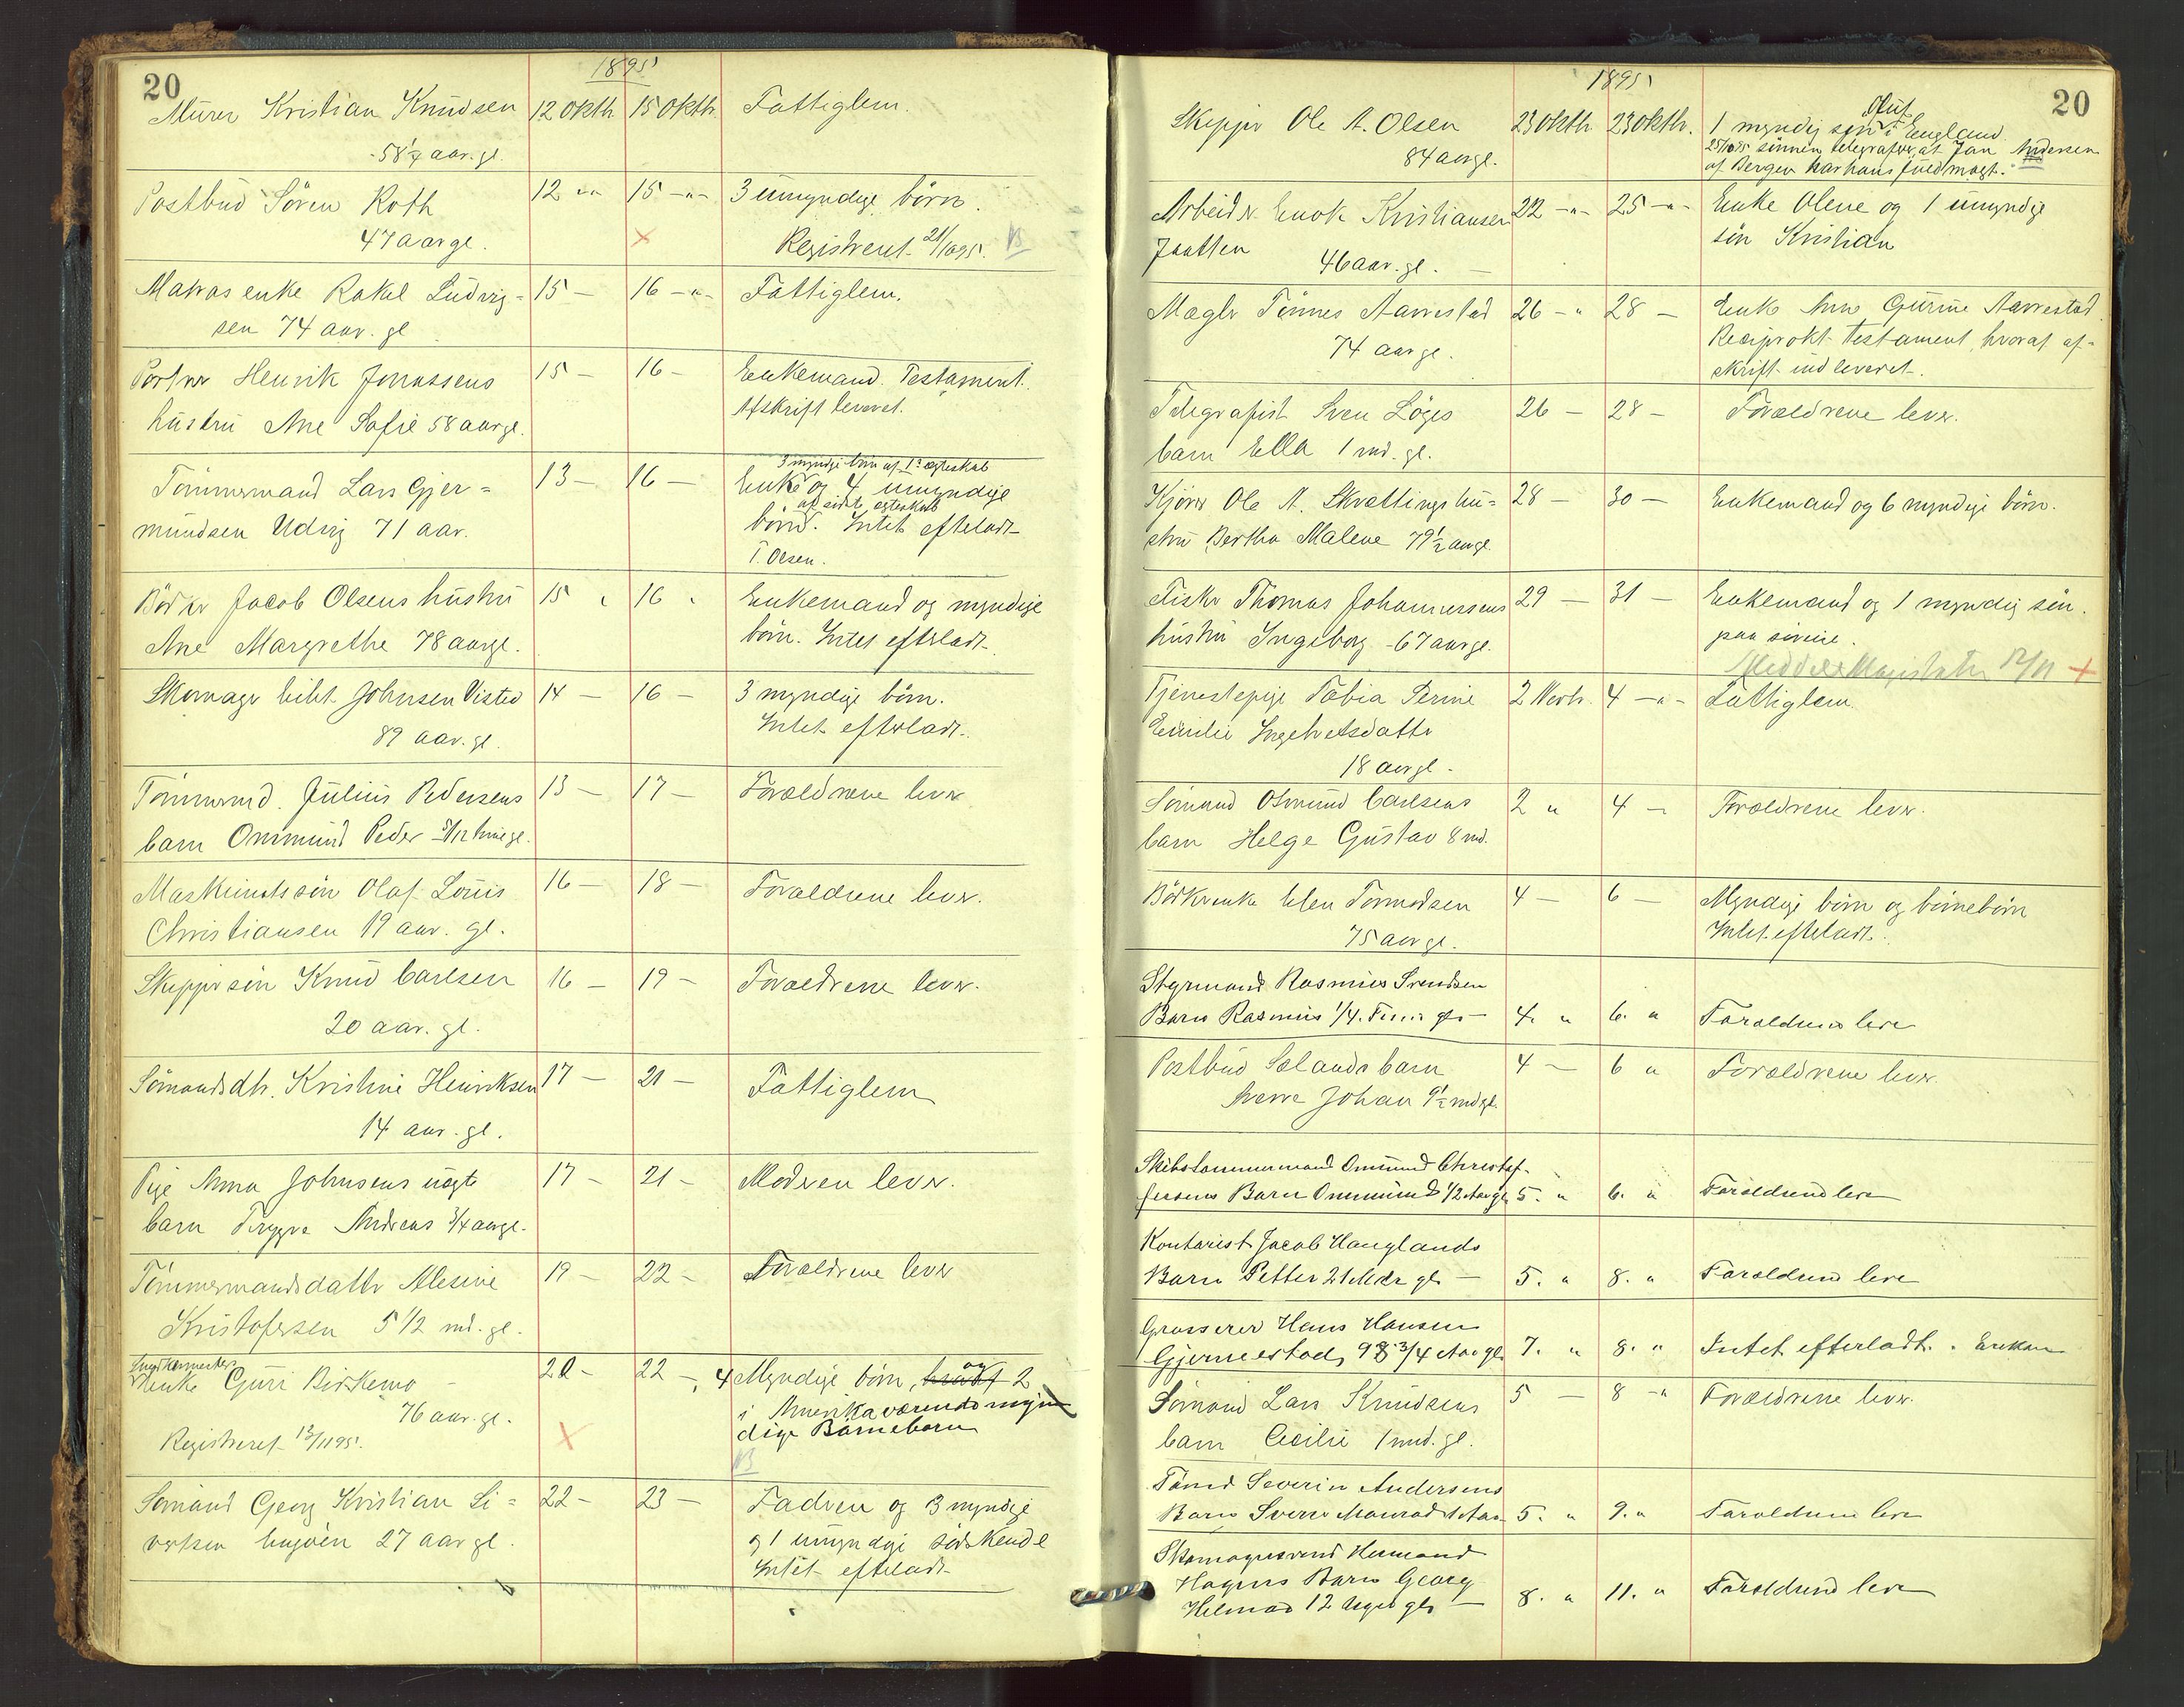 20
1895
Murer Kristian Knudsen 12 Oktb. 15 Oktb. Fattiglem.
58 1/4 aar. gl.
Postbud Sören Roth 12 -"- 15 -"- 3 umyndige börn.
47 aar gl. Registreret 21/10 95.
Matros enke Rakel Ludvig= 15 — 16 -"- Fattiglem.
sen 74 aar. gl.
Portner Henrik Jonassens 15 — 16 — Enkemand. Testament.
hustru Ane Sofie 58 aar gl. Afskrift leveret.
3 myndige börn af 1ste egteskab
Tömmermand Lars Gjer= 13 — 16 — Enke og 4 umyndige
af sidste egteskab
mundsen Udvig 71 aar. börn. Intet efterladt
T. Olsen.
Bödker Jacob Olsens hustru 15 " 16 " Enkemand og myndige
Ane Margrethe 78 aar gl. börn. Intet efterladt.
Skomager Johnsen Visted 14 — 16 — 3 myndige börn.
89 aar. gl. Intet efterladt.
Tömmermd. Julius Pedersens 13 — 17 — Forældrene lever
barn Ommund Peder
Maskinistsön Olaf Louis 16 — 18 — Forældrene lever.
Christiansen 19 aar. gl.
Skippersön Knud Carlsen 16 — 19 — Forældrene lever.
20 aar. gl.
Sömandsdtr. Kristine Henriksen 17 — 21 — Fattiglem
14 aar. gl.
Pige Anna Johnsens uægte 17 — 21 — Moderen lever.
barn Trygve Andreas 3/4 aar gl.
Tömmermandsdatter Alesine 19 — 22 — Forældrene lever
Kristofersen 5 1/2 md. gl.
enke Guri Birkemo 20 — 22 — 4 Myndige börn, og 2
76 aar. gl. i Amerika værende myn
Registreret 13/11 95. dige Barneborn
Sömand Georg Kristian Si= 22 — 23 — Fadren og 3 myndige
vertsen ungven 27 aar gl. og 1 umyndige södskende
Intet efterladt
20
1895
Skipper Ole A. Olsen 23 Oktb. 23 Oktb. 1 myndig sön Oluf i England.
84 aar gl. 25/10 95 sönnen telegraferer, at Jan Andersen
af Bergen har hans fuldmagt.
Arbeider Enok Kristiansen 22 -"- 25 -"- Enke Olene og 1 umyndig
Jaatten 46 aar. gl. sön Kristian
Mægler Tönnes Aarrestad 26 -" 28 — Enke Ane Gurine Aarrestad.
74 aar gl. Reciprokt testament, hvoraf af=
skrift indleveret.
Telegrafist Sven Löges 26 — 28 — Forældrene lever.
barn Ella 1 md. gl.
Kjörer Ole A. Skrettings hu= 28 — 30 — Enkemand og 6 myndige börn.
stru Bertha Malene 79 1/2 aar gl.
Fisker Thomas Johannesens 29 — 31 — Enkemand og 1 myndig sön.
hustru Ingeborg 67 aar gl. paa sineie.
Meddelt Magistraten 12/11
Tjenestepige Tobia Perine 2 Novb. 4 -"- Fattiglem
Emilie Ingebretsdatter
18 aar gl.
Sömand Osmund Carlsens 2 " 4 — Forældrene lever.
barn Helge Gustav 8 md.
Bödkerenke Elen Tormodsen 4 — 6 — Myndige börn og börnebörn
75 aar gl. Intet efterladt.
Styrmand Rasmus Svendsen
Barn Rasmus 1/4 Time gl. 4. " 6. " Forældrene leve
Postbud Sælands barn 4 — 6 " Forældrene lever.
Sverre Johan 9 1/2 md gl.
Skibstømmermand Ommund Christof-
fersens Barn Ommund 1/2 Aar gl 5. " 6. " Forældrene leve
Kontorist Jacob Hauglands
Barn Petter 21 Mdr gl — 5. " 8. " Forældrene leve
Grosserer Hans Hansen
Gjernestad, 98 3/4 Aar gl 7. " 8. " Intet efterladt. Enken
Sömand Lars Knudsens 5 — 8 -" Forældrene lever.
barn Cecilie 1 md. gl.
Tömd Severin Andersens
Barn Sverre Monrad 1 Aar 5. " 9. " Forældrene leve
Skomagersvend Hermand
Hagens Barn Georg
Helmer 12 Dage gl. — 8. " 11. " Forældrene leve